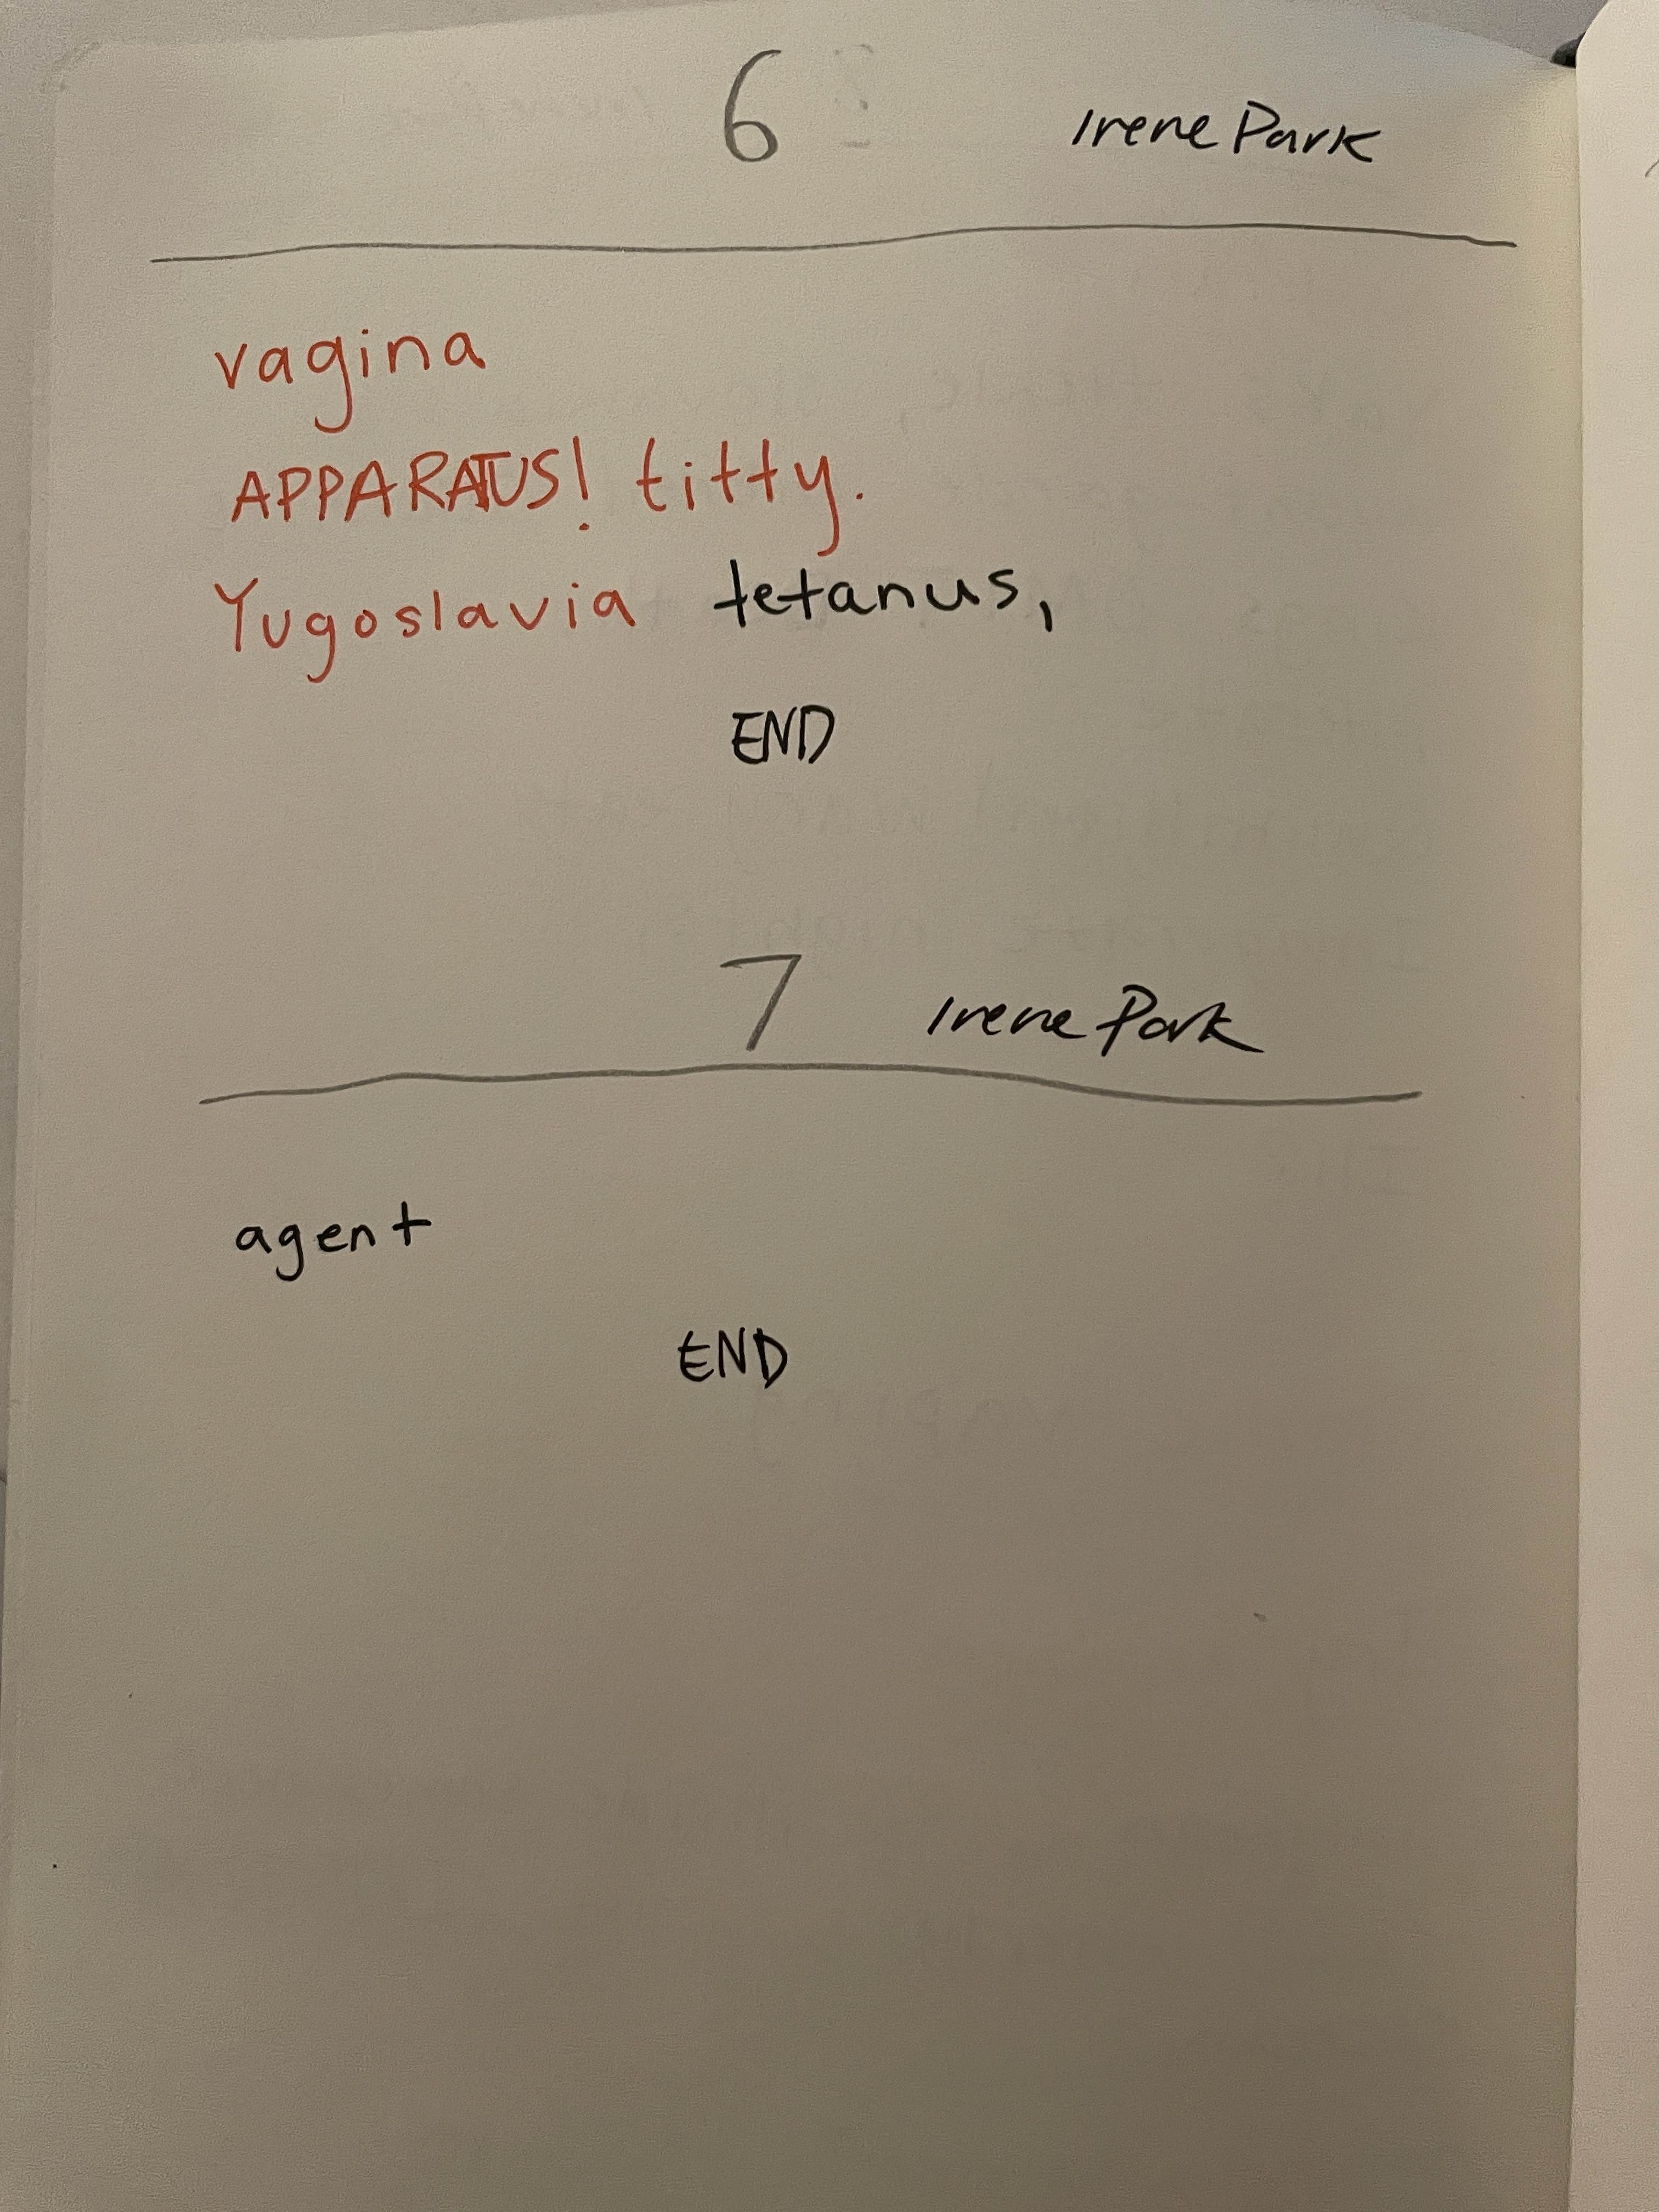 6 Irene Park
vagina
APPARATUS! titty.
Yugoslavia tetanus,
END
7 Irene Park
agent
END